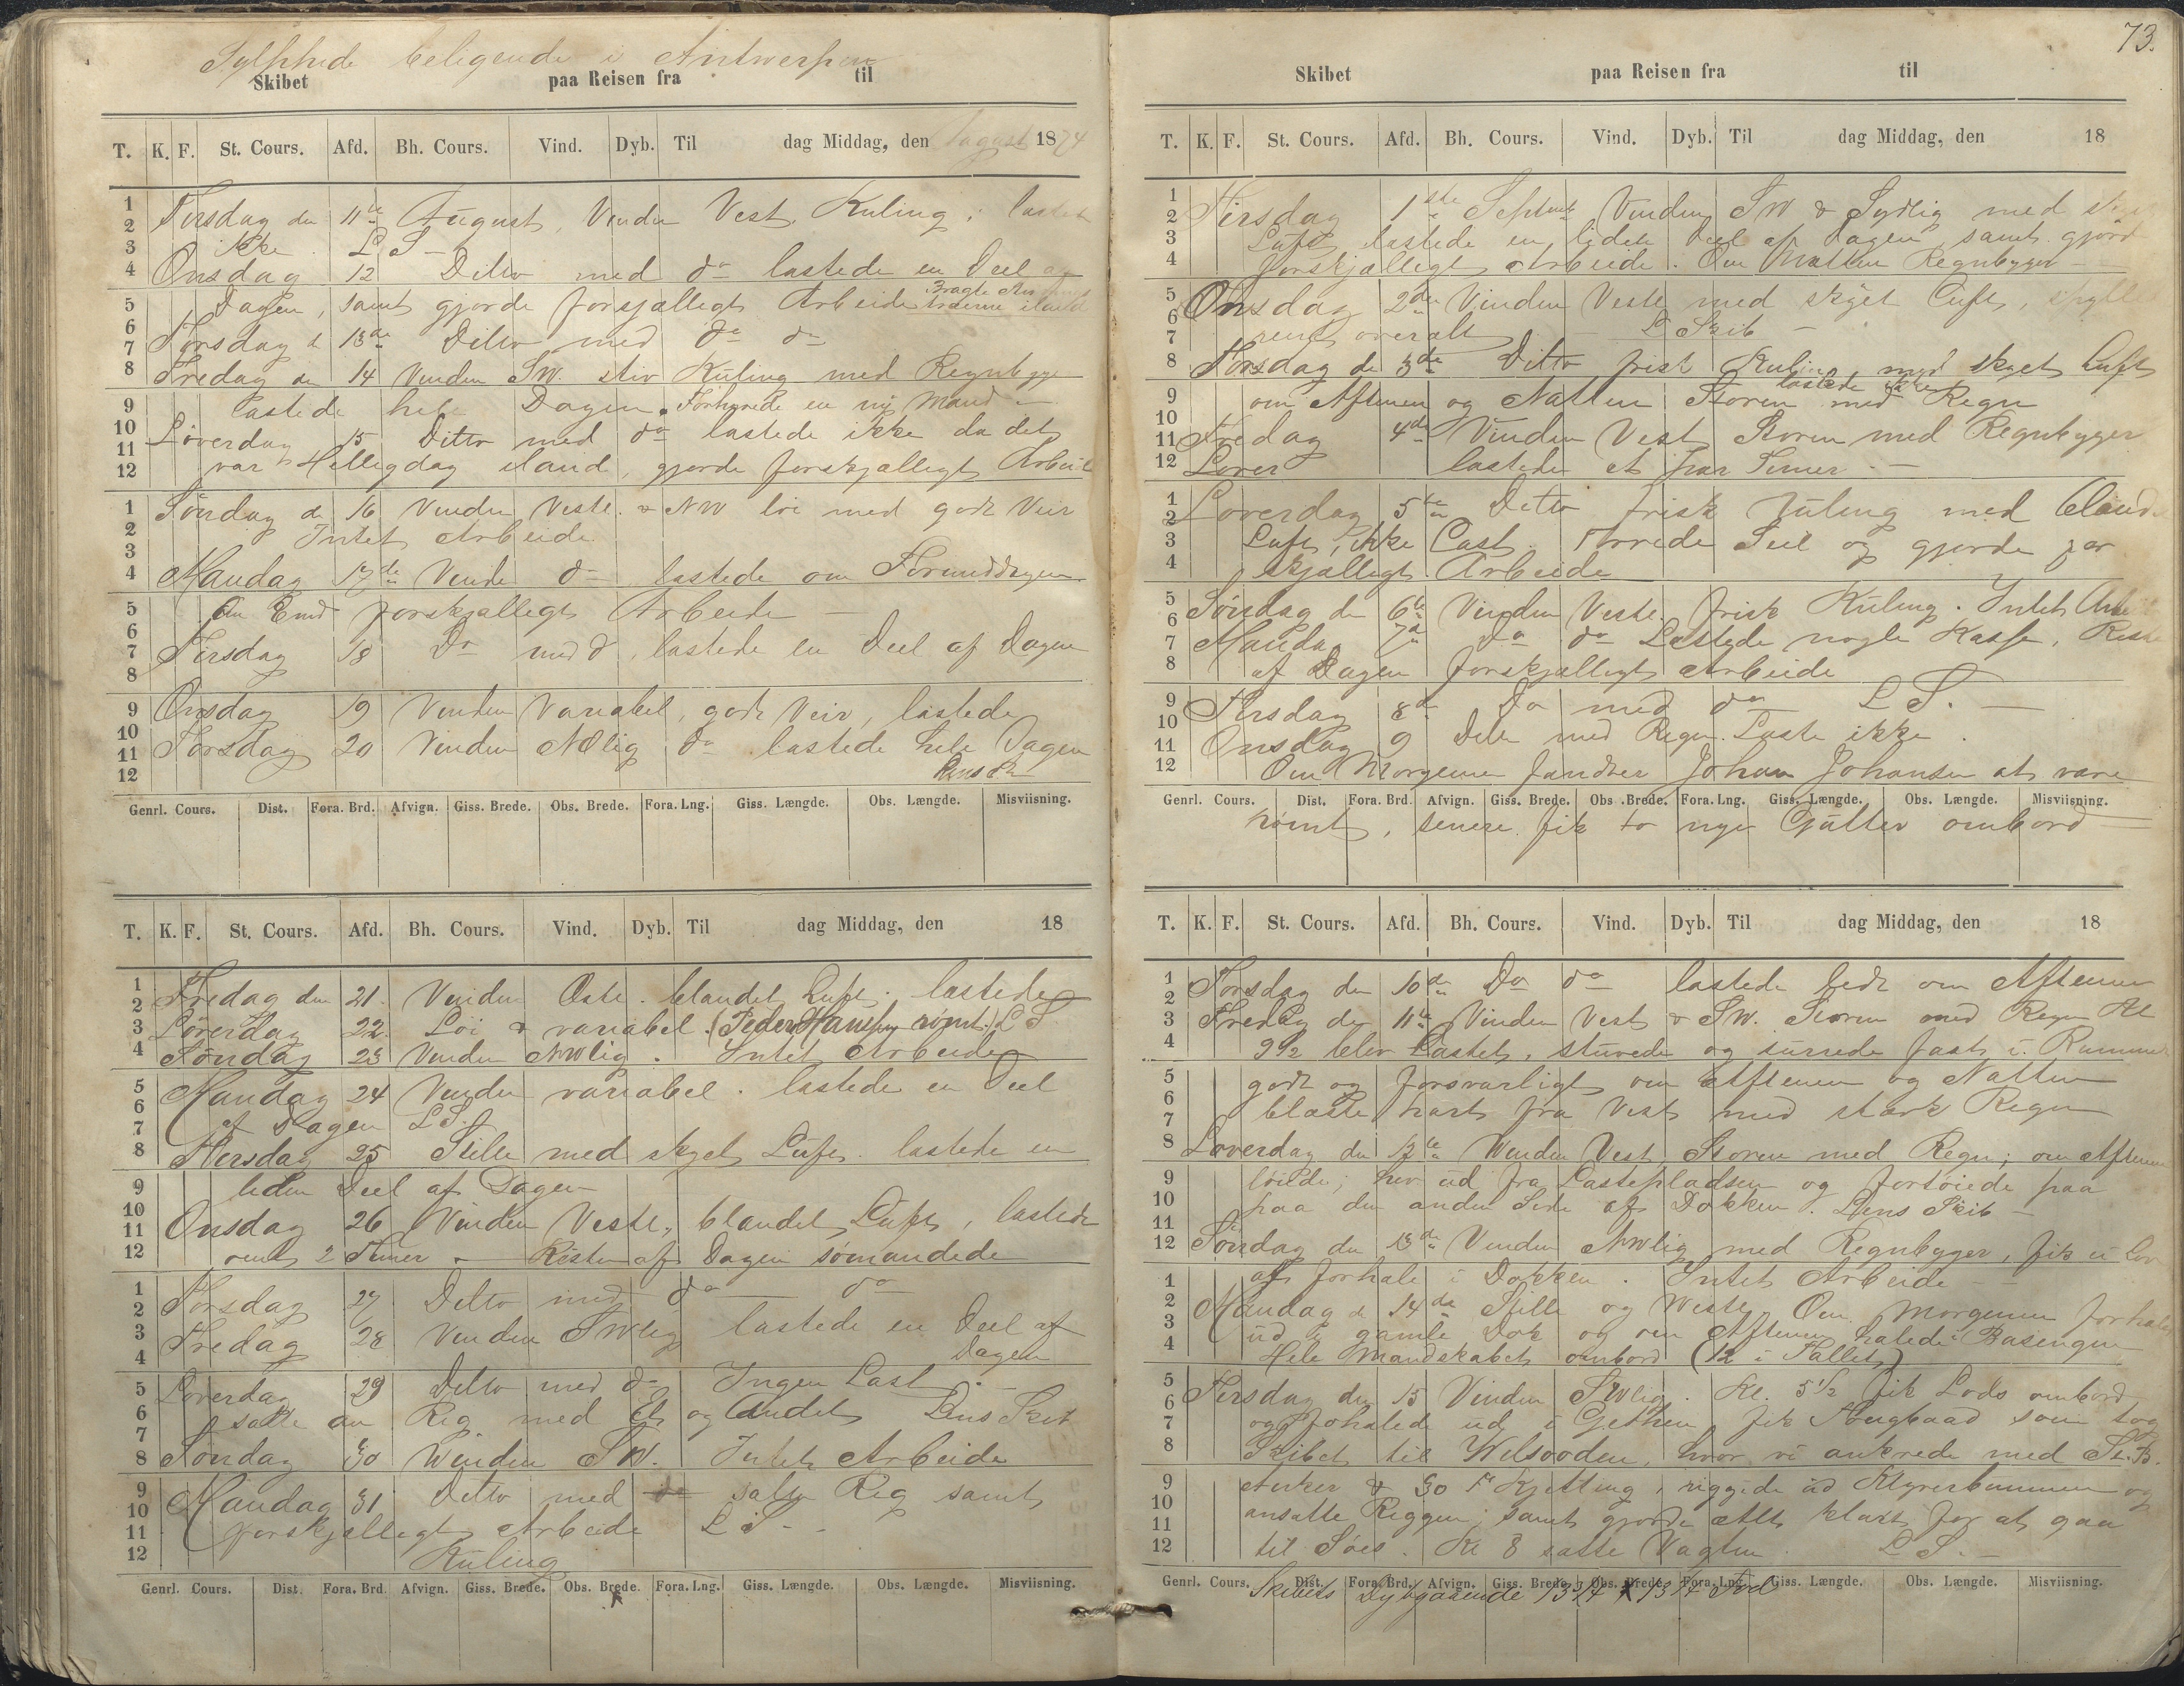 Sylphide beligende i Antwerpen
Skibet paa Reisen fra til
T. K. F. St. Cours. Afd. Bh. Cours. Vind. Dyb. Til dag Middag, den August 1874
1 2 Tirsdag den 11te August, Vinden Vest. Kuling; lastet
3 ikke. L S -
4 Onsdag 12 Ditto med do lastede en Deel af
5 Dagen, samt gjorde forsjælligt Arbeide Bragte
træerne iland
6 7 Torsdag d 13de Ditto med do do
8 Fredag den 14 Vinden SW. stiv Kuling med Regnbyge
9 lastede hele Dagen. Forhyrede en ny Mand -
10 Løverdag 15 Ditto med do lastede ikke da det
11 12 var Helligdag iland, gjorde forskjælligt Arbeide
1 Søndag d 16 Vinden Vestl. & NW löi med godt Veir
2 3 Intet Arbeide
4 Mandag 17de Vinden do lastede om Formiddagen
5 Om Emd forskjælligt Arbeide
6 7 Tirsdag 18 Do med d, lastede en Deel af Dagen
8
9 Onsdag 19 Vinden Variabel, godt Veir, lastede
10 11 Torsdag 20 Vinden NOlig do lastede hele Dagen
12 Lens Sk
Genrl. Cours. Dist. Fora. Brd. Afvign. Giss. Brede. Obs. Brede. Fora. Lng. Giss. Længde. Obs. Længde. Misviisning.
T. K. F. St. Cours. Afd. Bh. Cours. Vind. Dyb. Til dag Middag, den 18
1 2 Fredag den 21. Vinden Östl. blandet Luft. lastede
3 Løverdag 22. Löi & variabel. (Peder Hansen rømt.) L S
4 Søndag 23 Vinden NWlig. Intet Arbeide
5 6 Mandag 24 Vinden variabel. lastede en Deel
7 af Dagen L S.
8 Tiersdag 25 Stille med skyet Luft. lastede en
9 liden Deel af Dagen
10 11 Onsdag 26 Vinden Vestl., blandet Luft, lastede
12 omt 2 Timer - Resten af Dagen sømandede
1 2 Torsdag 27 Ditto med do do
3 Fredag 28 Vinden SWlig lastede en Deel af
4 Dagen
5 Løverdag 29 Ditto med do Ingen Last. -
6 7 satte an Rig med Et og Andet Lens Skib
8 Søndag 30 Winden SW. Intet Arbeide
9 10 Mandag 31 Ditto med do satte Rig samt
11 forskjælligt Arbeide L S -
12 Kuling
Genrl. Cours. Dist. Fora. Brd. Afvign. Giss. Brede. Obs. Brede. Fora. Lng. Giss. Længde. Obs. Længde. Misviisning.
73.
Skibet paa Reisen fra til
T. K. F. St. Cours. Afd. Bh. Cours. Vind. Dyb. Til dag Middag, den 18
1 2 Tirsdag 1ste Septmb Vinden SW & Sydlig med
3 Luft lastede en liden Deel af Dagen, samt gjord
4 forskjælligt Arbeide. Om Natten Regnbyger
5 6 Onsdag 2den Vinden Vestl med skyet Luft, skylle
7 rent overalt L Skib -
8 Torsdag de 3de Ditto frisk Kuling med skyet Luft
lastede ikke
9 10 om Aftenen og Natten Storm med Regn
11 Fredag 4de Vinden Vest Storm med Regnbyger
12 Løver lastede et par Timer. -
1 2 Løverdag 5te Ditto frisk Kuling med bland
3 Luft, ikke Last. Tørrede Seil og gjorde for
4 skjælligt Arbeide
5 6 Søndag de 6te Vinden Vestl. frisk Kuling. Intet Arbei
7 Mandag 7de Do do Lastede nogle Kasse, Reste
8 af Dagen forskjælligt Arbeide
9 10 Tirsdag 8de Do med do L S. -
11 Onsdag 9 Ditto med Regn. Laste ikke.
12 Om Morgenen fandtes Johan Johansen at være
Genrl. Cours. Dist. Fora. Brd. Afvign. Giss. Brede. Obs. Brede. Fora. Lng. Giss. Længde. Obs. Længde. Misviisning.
rømt, senere fik to nye Gutter ombord
T. K. F. St. Cours. Afd. Bh. Cours. Vind. Dyb. Til dag Middag, den 18
1 2 Torsdag den 10de Do do lastede lidt om Aftenen
3 Fredag de 11te Vinden Vest & SW. Storm med Regn Kl
4 9½ blev Lastet, stuvede og surrede fast i Rummet
5 godt og forsvarligt om Aftenen og Natten
6 7 blæste hart fra Vest med stærk Regn
8 Løverdag den 12te Winden Vest, Storm med Regn; om Aftenen
9 löilde; hev ud fra Lastepladsen og fortøiede paa
10 11 paa den anden Side af Dokken. Lens Skib -
12 Søndag den 13de Vinden NWlig med Regnbyger, fik ei Lov
1 at forhale i Dokken. Intet Arbeide
2 Mandag d 14de Stille og Vestl. Om Morgenen forhaled
3 ud i gamle Dok og om Aftenen halede i Basengen
4 Hele Mandskabet ombord (12 i Tallet)
5 6 Tirsdag den 15 Vinden SWlig. Kl. 5½ fik Lods ombord
7 og forhalede ud i Gethen, fik Slougbaad som tog
8 Skibet til Welsooden, hvor vi ankrede med St. B.
9 Anker & 30 Fv Kjetting, riggede ud Klyverbummen og
10 11 ansatte Riggen; samt gjorde Alt klart for at gaa
12 til Søes. Kl 8 satte Vagten. L S. -
Genrl. Cours. Dist. Fora. Brd. Afvign. Giss. Brede. Obs. Brede. Fora. Lng. Giss. Længde. Obs. Længde. Misviisning.
Skibets Dybgaaende 13¾ x 13¾ Fod